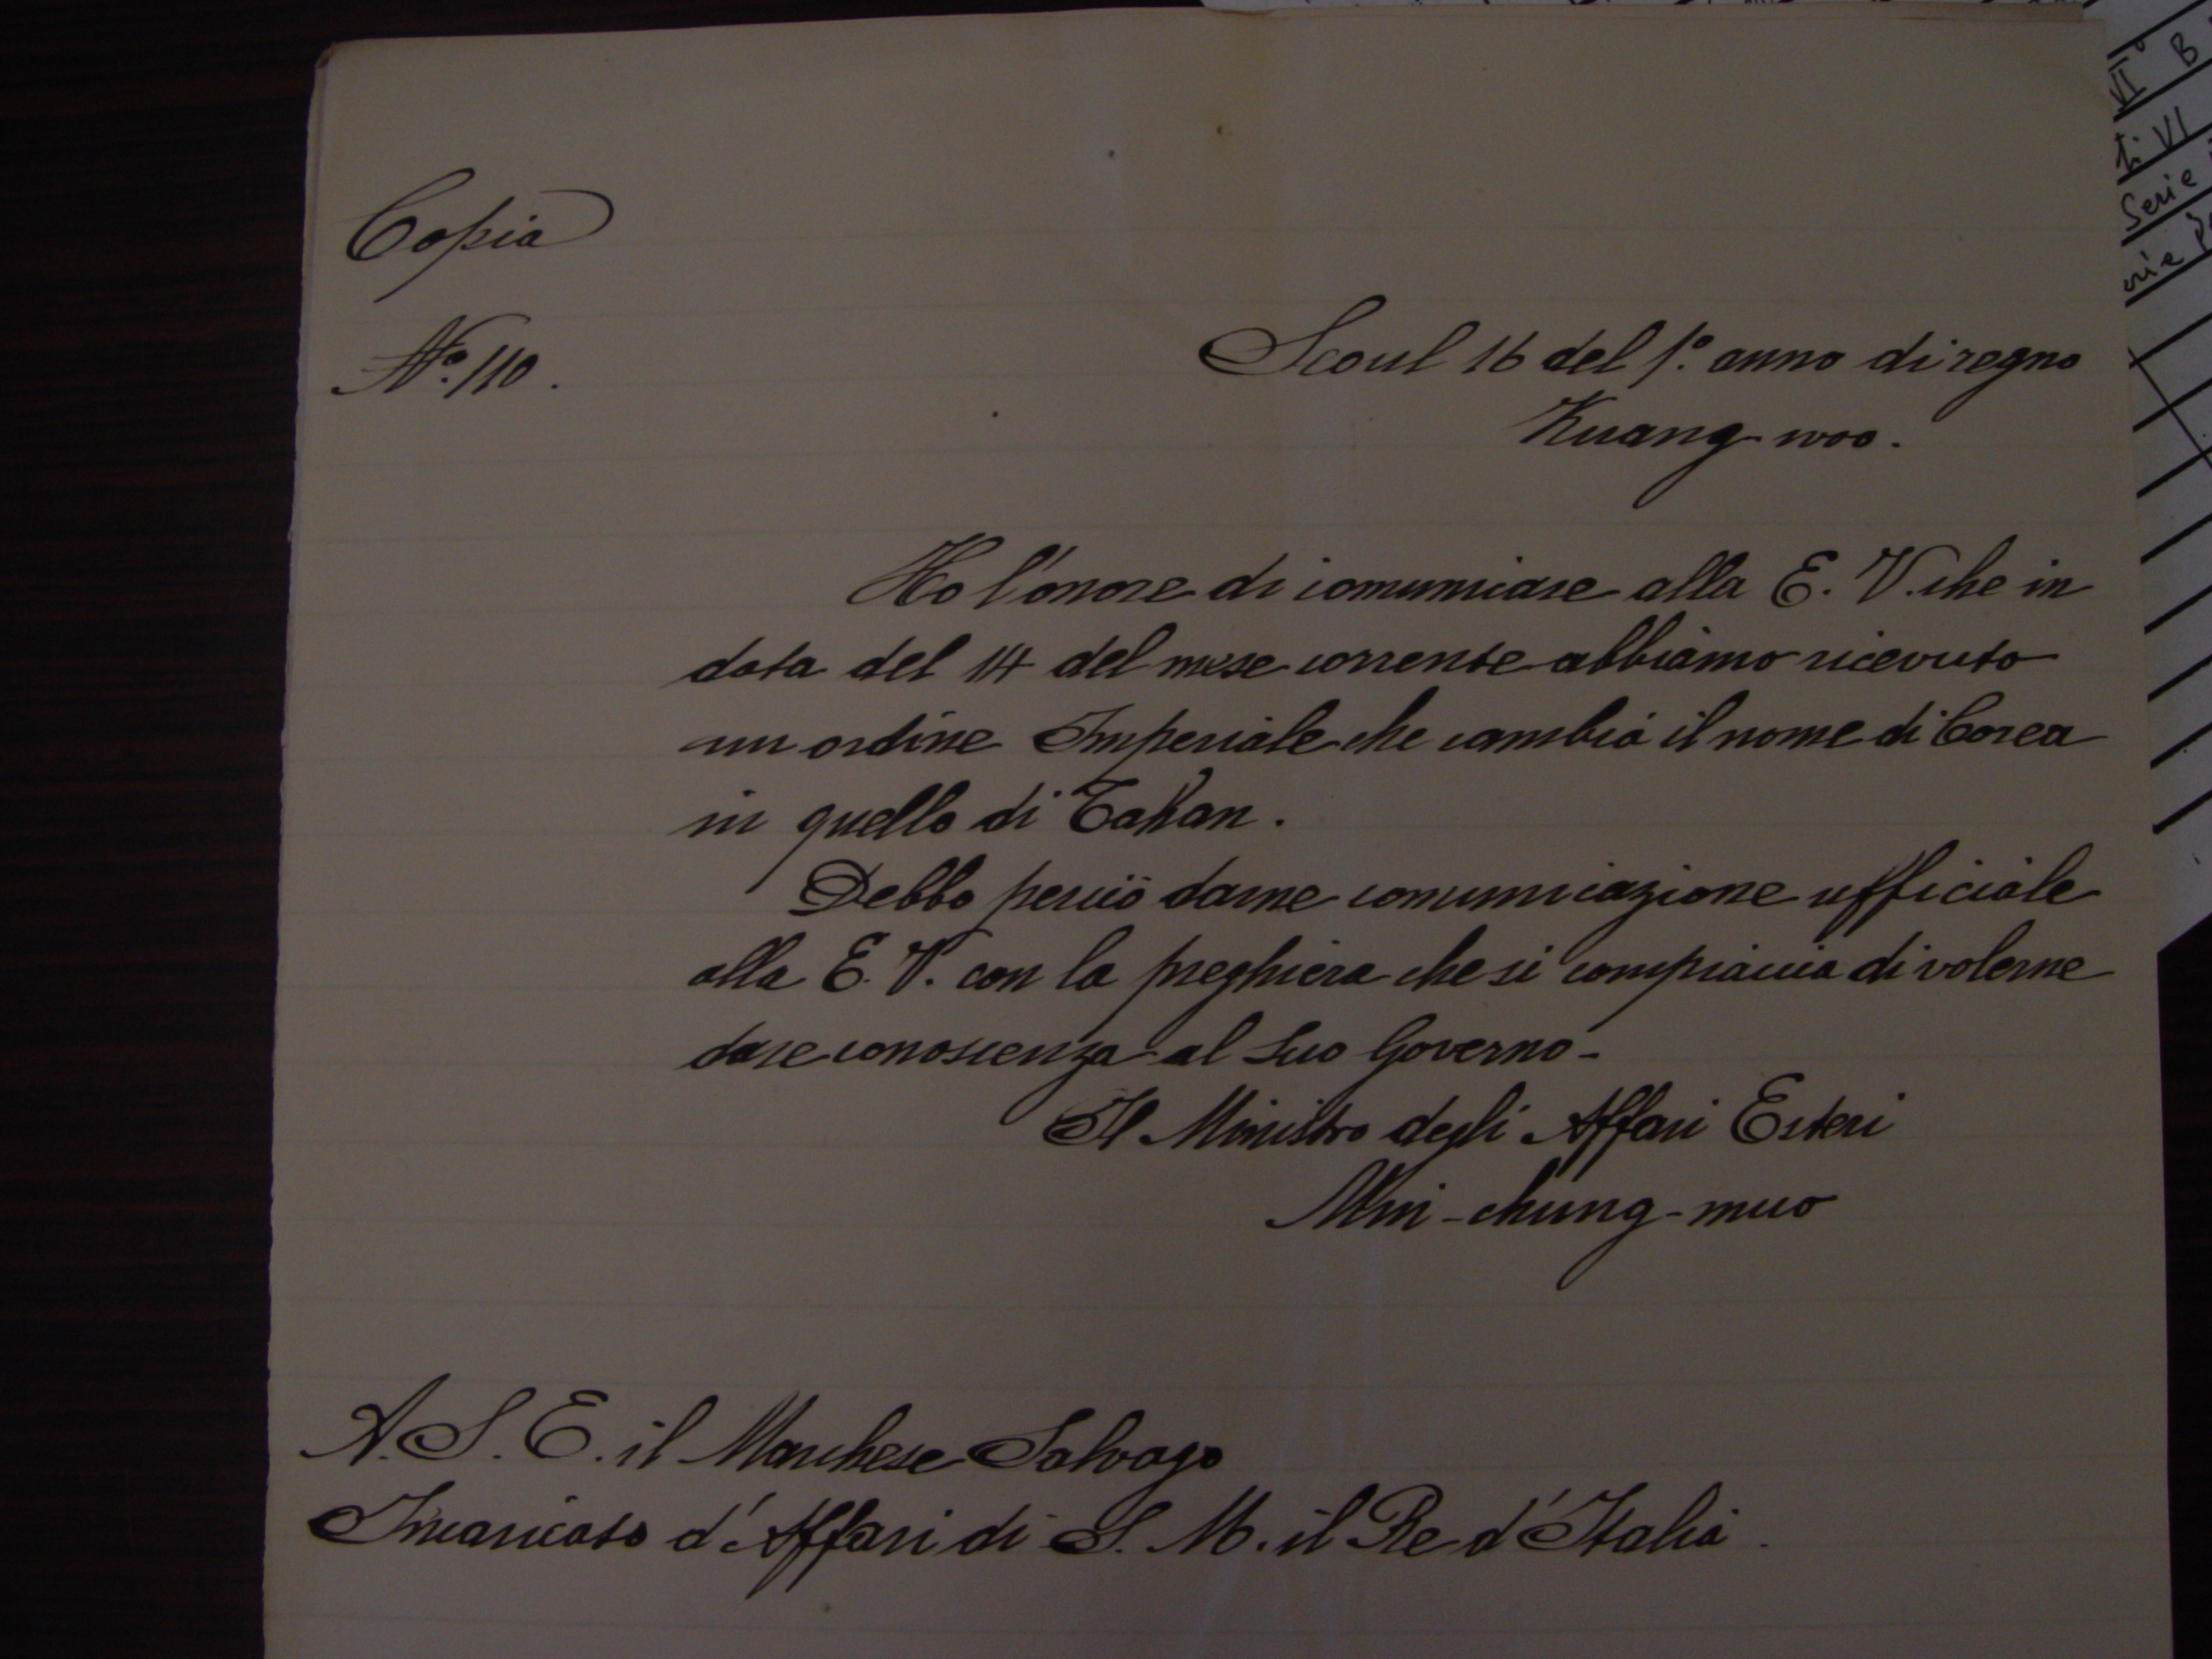 Copia
No. 110.
Seoul 16 del 1º. anno di regno
Kuang-woo.
Ho l'onore di comunicare alla E. V. che in
data del 14 del mese corrente abbiamo ricevuto
un ordine Imperiale che cambia il nome di Corea
in quello di Tahan.
Debbo perciò darne comunicazione ufficiale
alla E. V. con la preghiera che si compiaccia di volerne
dare conoscenza al Suo Governo-
Il Ministro degli Affari Esteri
Min-chung-muo
A. S. E. il Marchese Salvago
Incaricato d'Affari di S. M. il Re d'Italia.
VI° B
ti VI
Serie